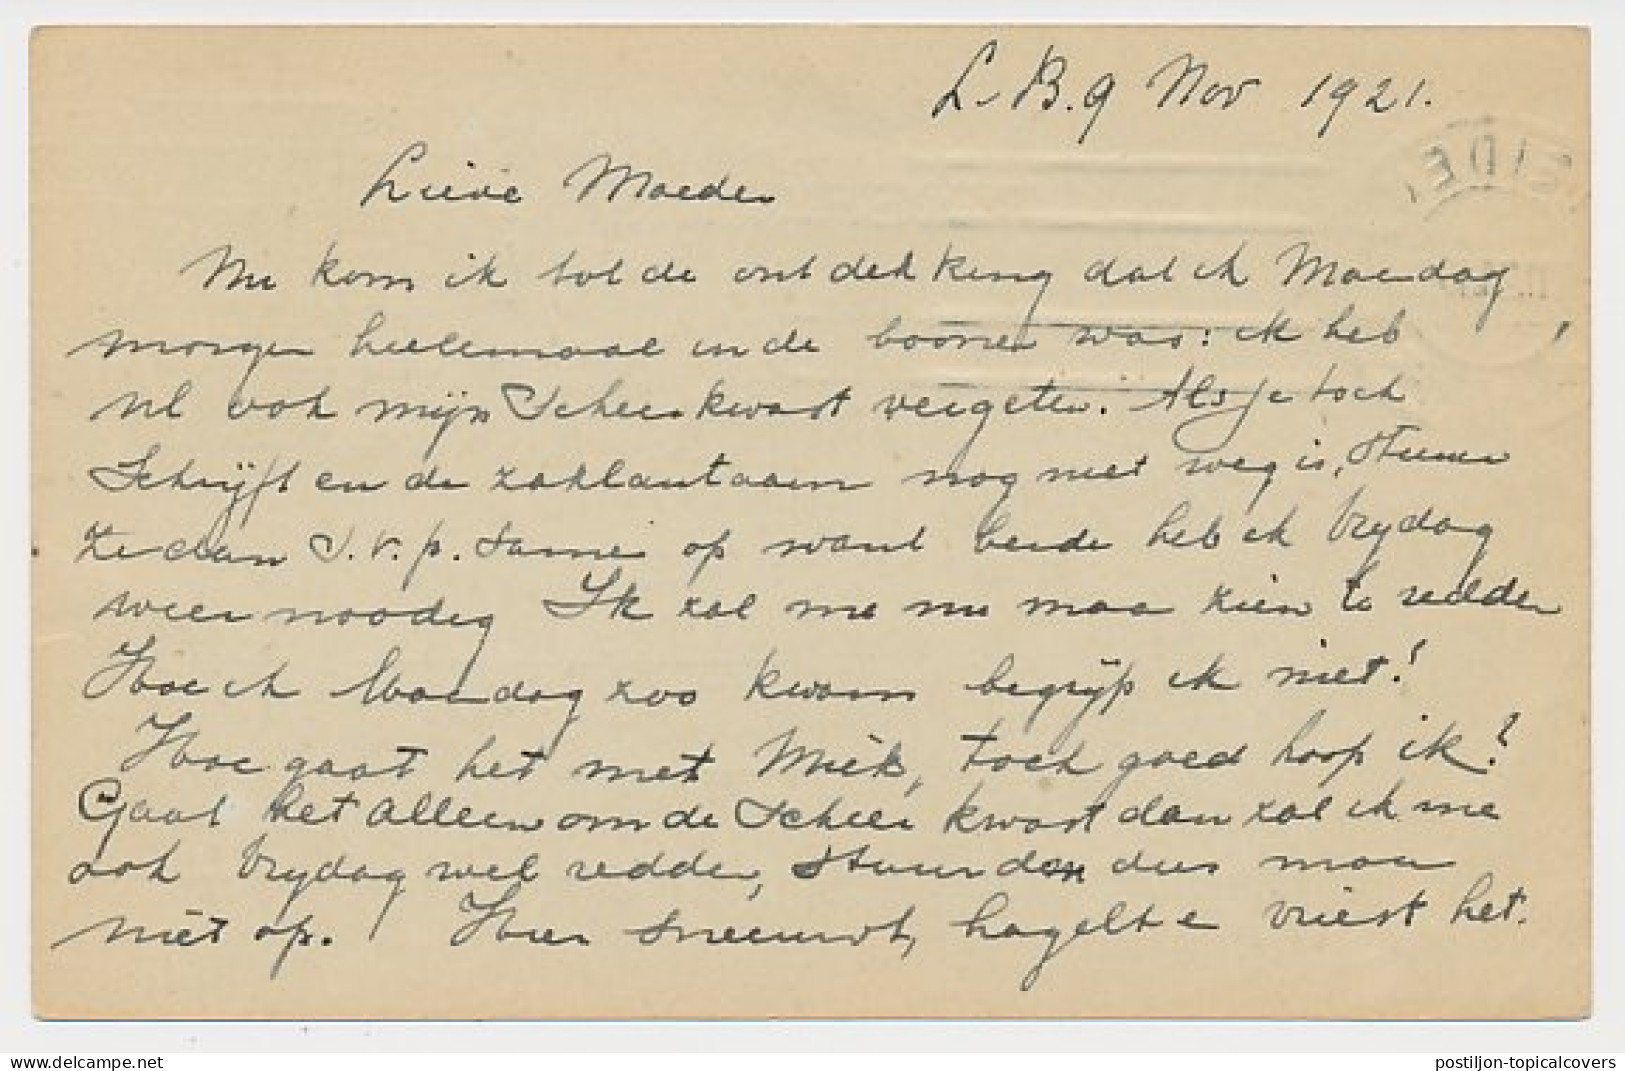 L. B. 9 Nov 1921.
Lieve Moeder
Nu kom ik tot de ontdekking dat ik Maandag
morgen heelemaal in de boonen was: ik heb
nl ook mijn Scheerkwast vergeten. Als je toch
Schrijft en de zaklantaarn nog niet weg is, stuur
ze dan S.V.p. samen op want beide heb ik Vrydag
weer noodig Ik zal me nu maar zien te redden
Hoe ik Maandag zoo kwam begrijp ik niet!
Hoe gaat het met Miek, toch goed hoop ik?
Gaat het alleen om de Scheer kwast dan zal ik me
ook Vrydag wel redden, stuur den dus maar
niet op. Hier sneeuwt, hagelt en vriest het.
postiljon-topicalcovers
https://www.delcampe.net